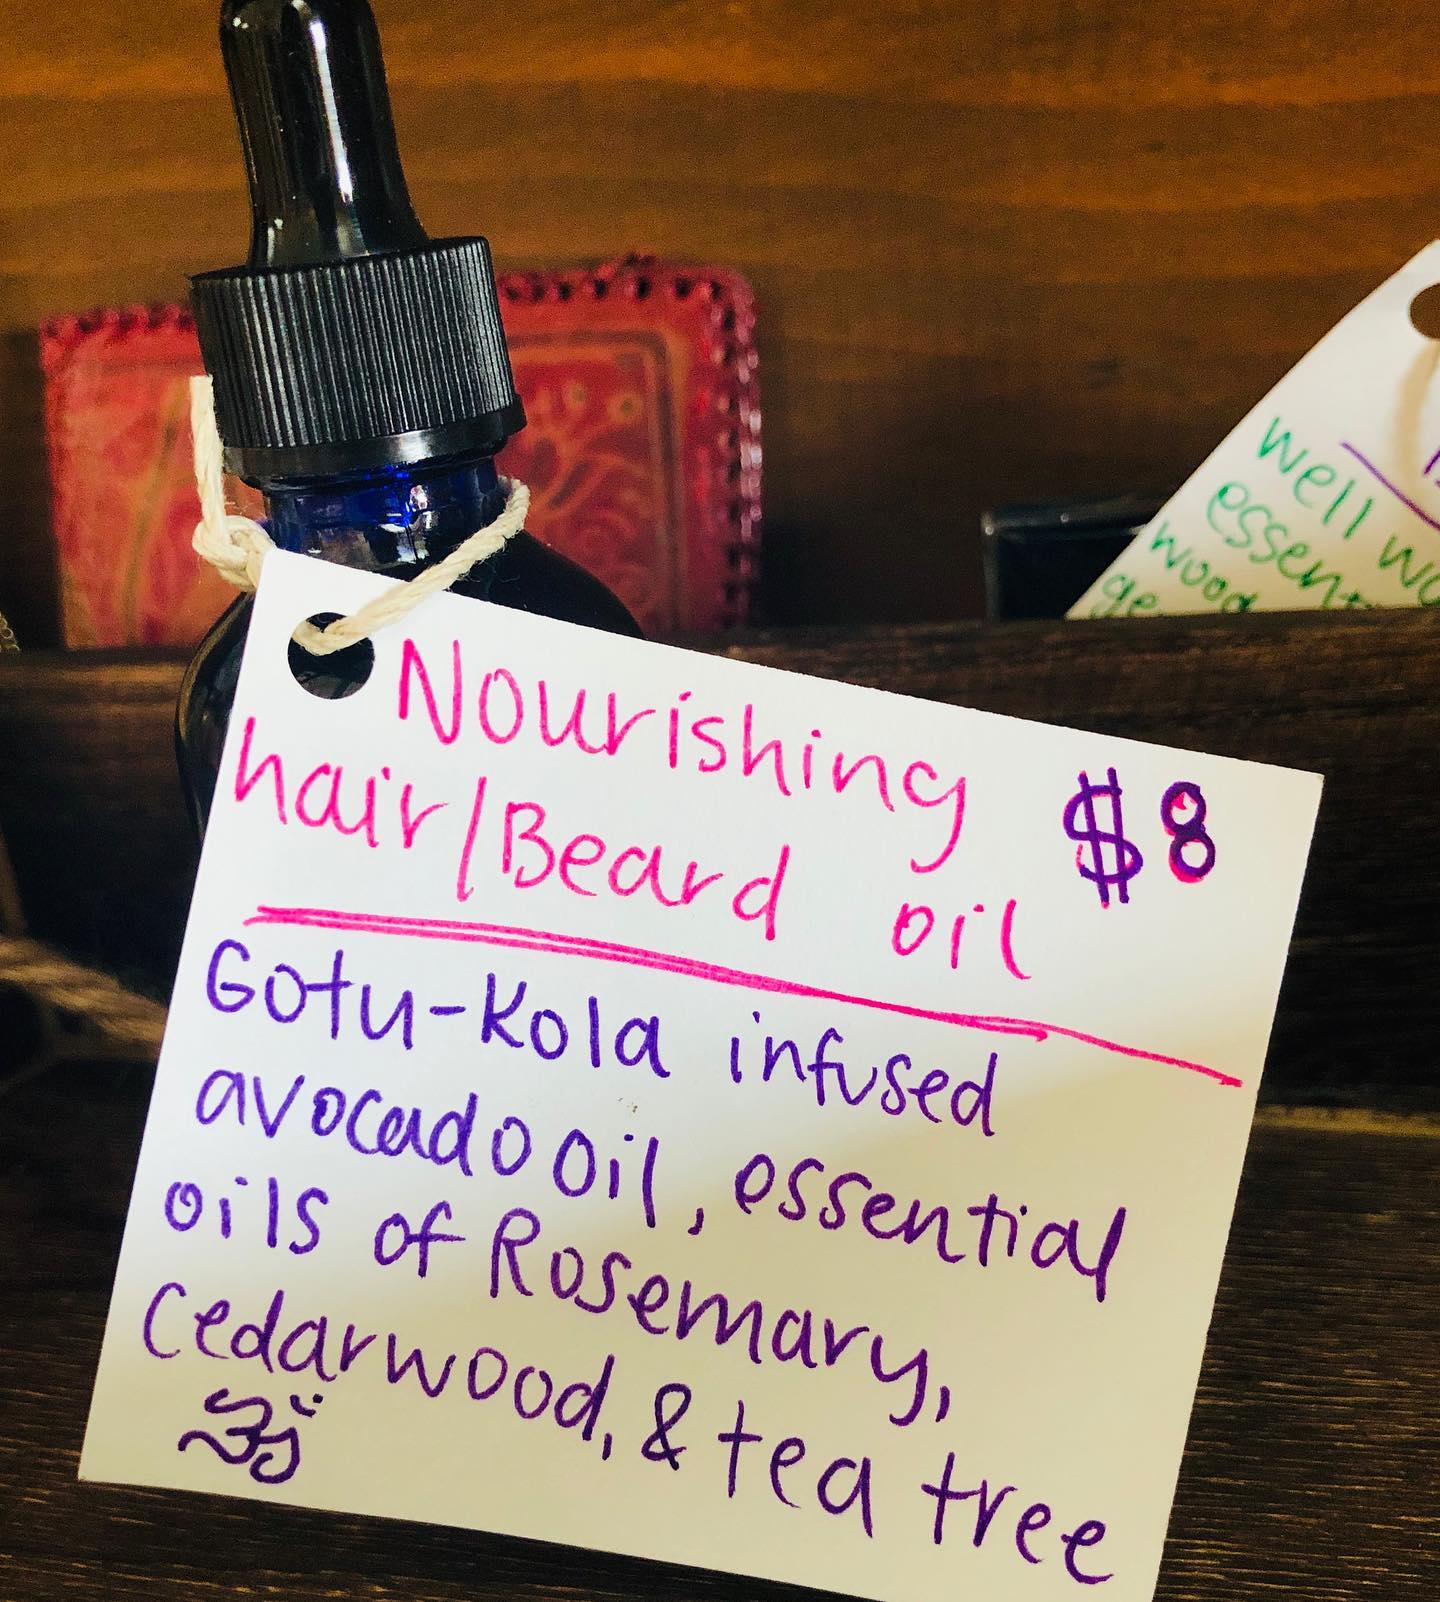 Nourishing
hair/Beard oil
$8
Gotu-Kola infused
avocado oil, essential
oils of Rosemary,
Cedarwood, & tea tree
well
essent
wood
ge